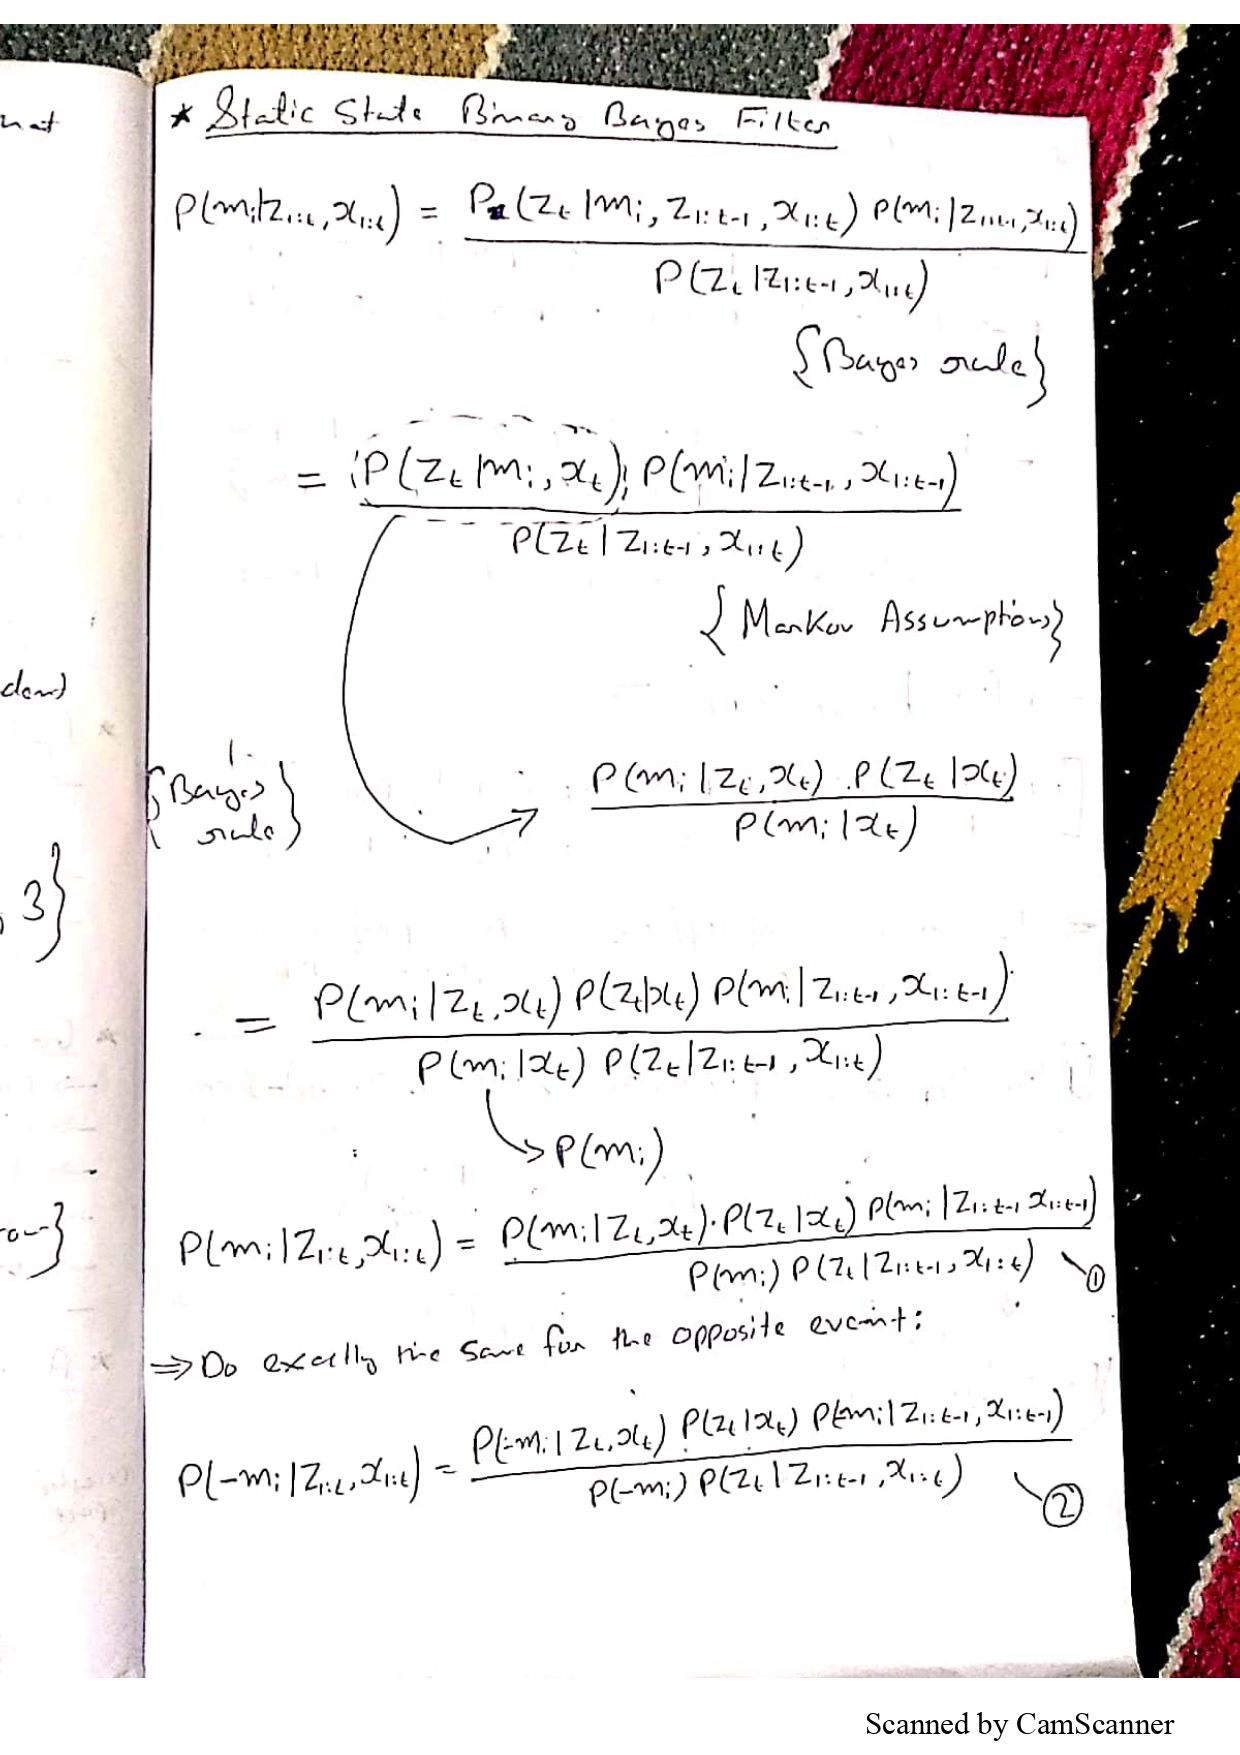 nat
★ Static State Binary Bayes Filter
P(mi|z1:t, x1:t) = P(zt|mi, z1:t-1, x1:t) P(mi|z1:t-1, x1:t)
P(zt|z1:t-1, x1:t)
{Bayes rule}
= P(zt|mi, xt) P(mi|z1:t-1, x1:t-1)
P(zt|z1:t-1, x1:t)
{Markov Assumptions}
{Bayes
rule}
P(mi|zt, xt) . P(zt|xt)
P(mi|xt)
, 3}
= P(mi|zt, xt) P(zt|xt) P(mi|z1:t-1, x1:t-1)
P(mi|xt) P(zt|z1:t-1, x1:t)
→ P(mi)
P(mi|z1:t, x1:t) = P(mi|zt, xt) · P(zt|xt) P(mi|z1:t-1 x1:t-1)
P(mi) P(zt|z1:t-1, x1:t) ①
⇒ Do exactly the same for the opposite event:
P(-mi|z1:t, x1:t) = P(-mi|zt, xt) P(zt|xt) P(-mi|z1:t-1, x1:t-1)
P(-mi) P(zt|z1:t-1, x1:t) ②
Scanned by CamScanner